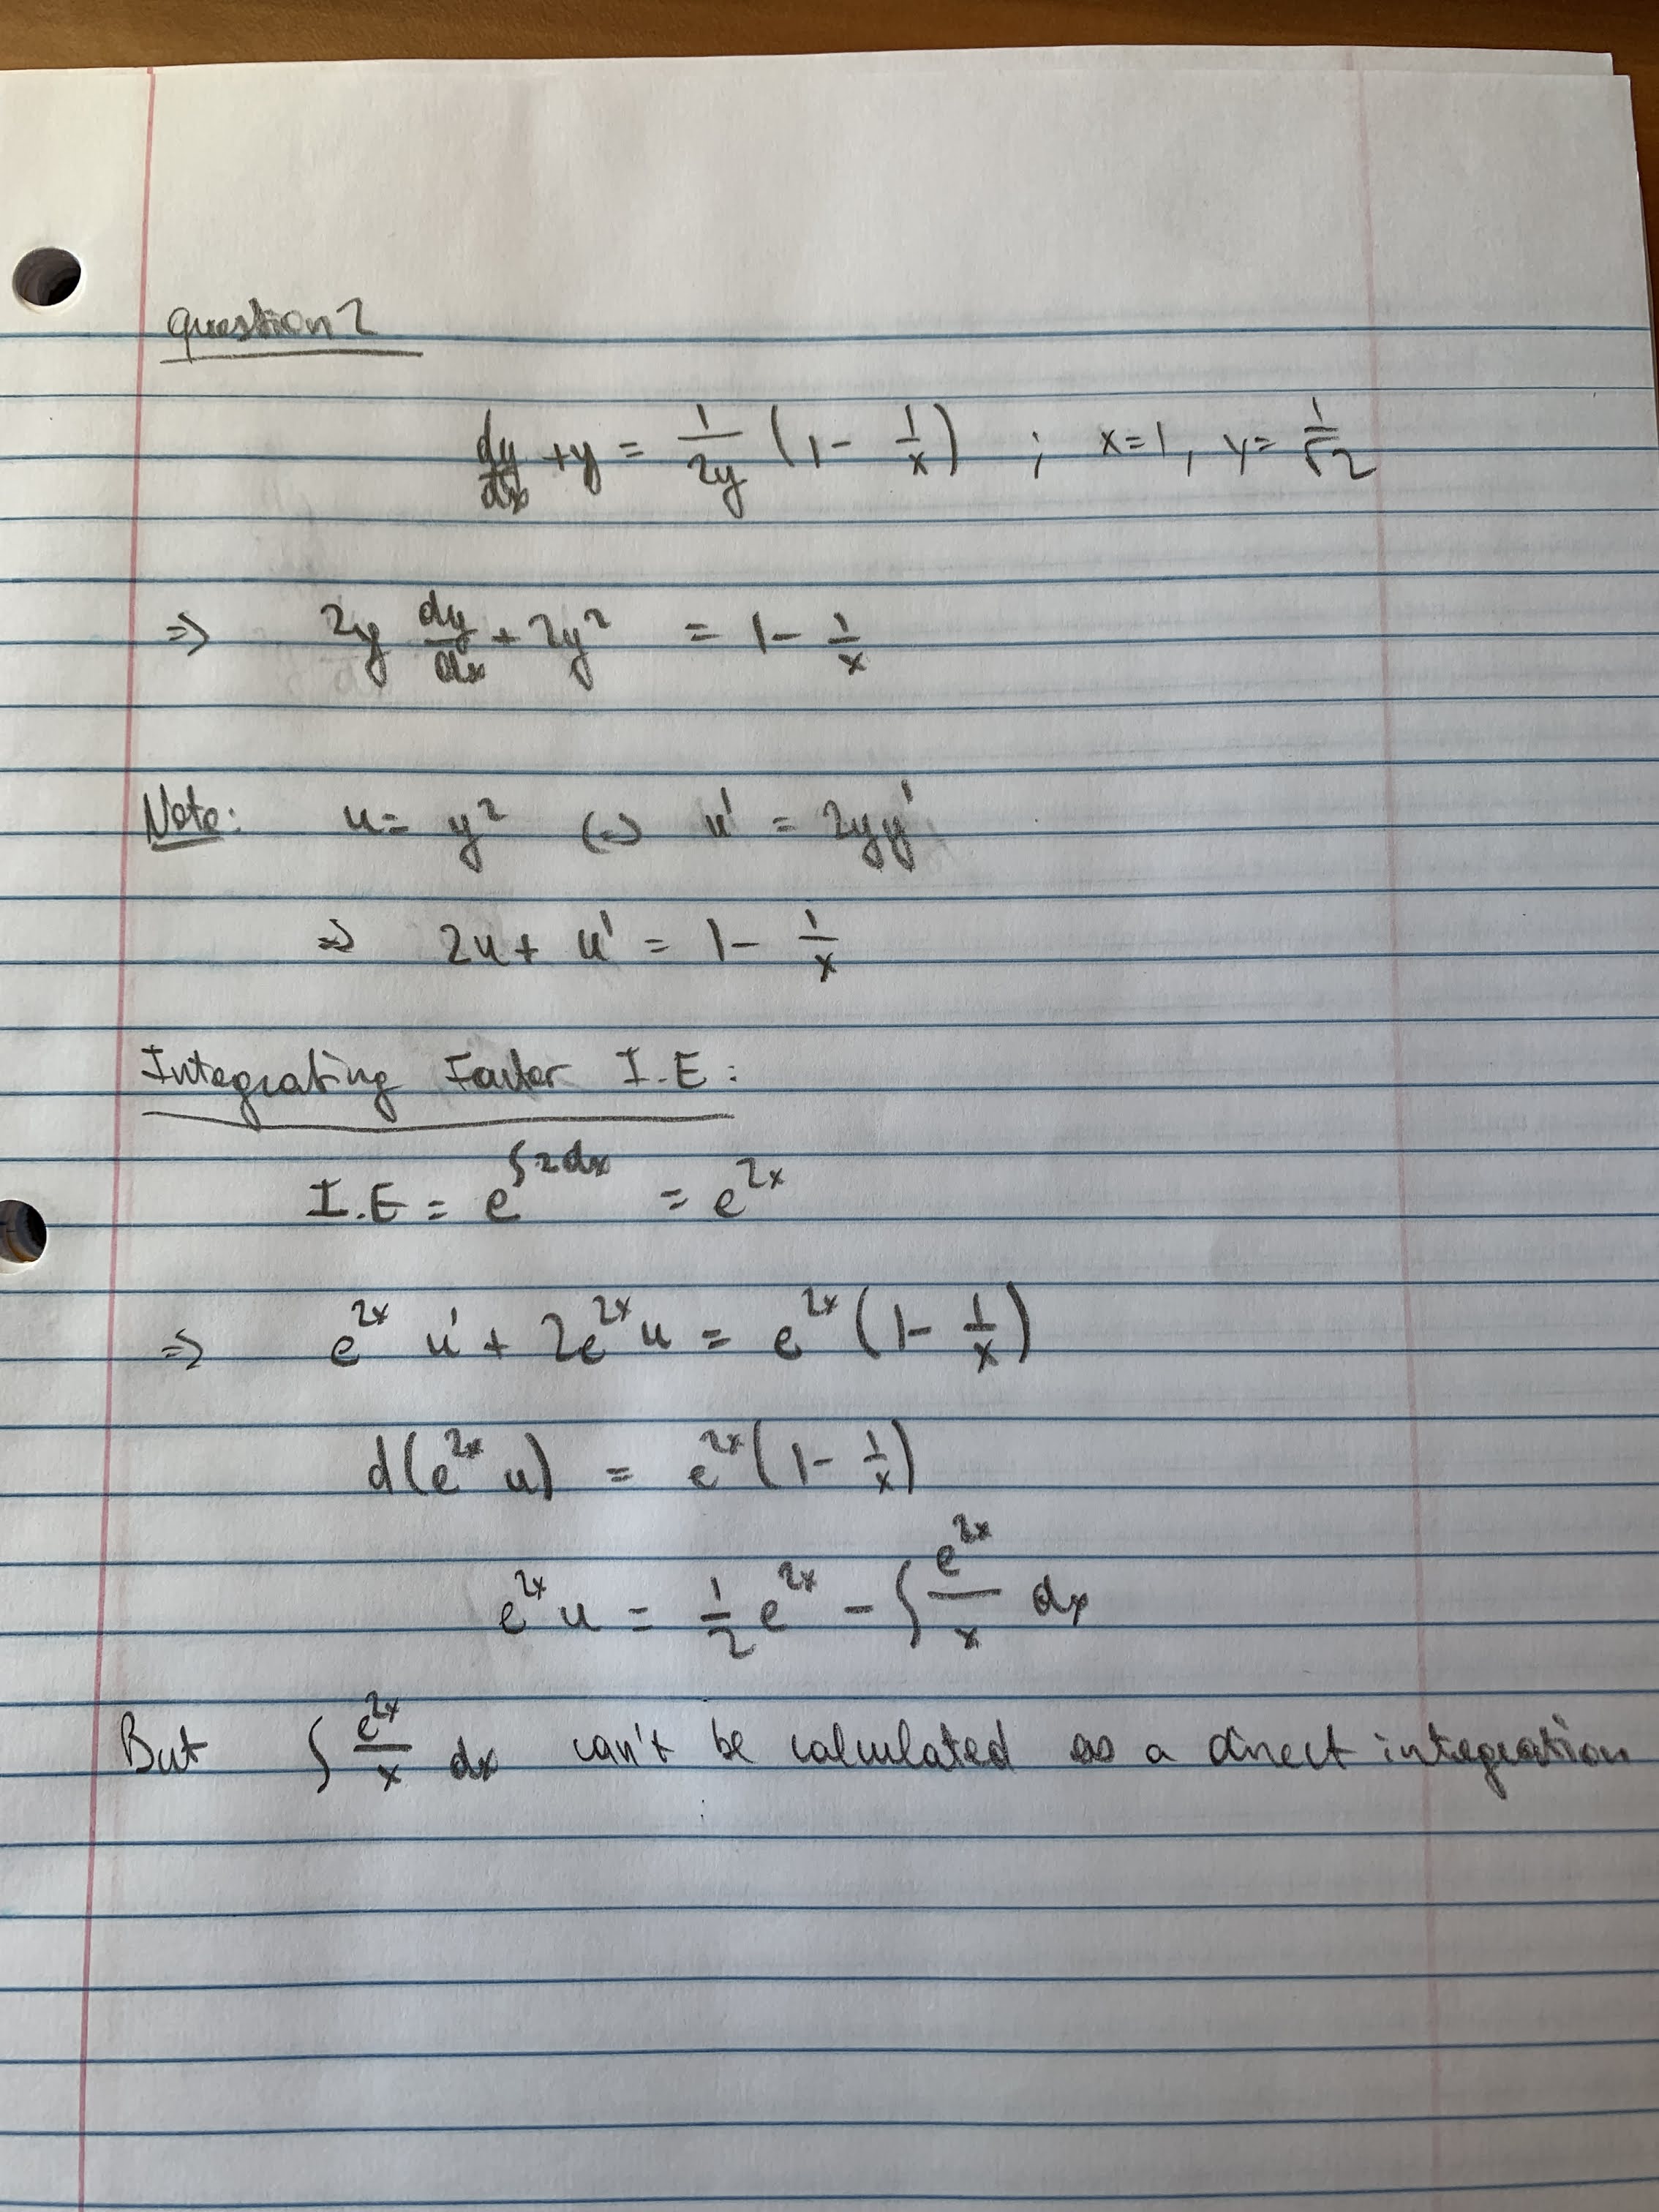 Question 2
dy/dx + y = 1/2y (1 - 1/x) ; x=1, y= 1/√2
⇒ 2y dy/dx + 2y² = 1 - 1/x
Note: u = y² ⇔ u' = 2yy'
⇒ 2u + u' = 1 - 1/x
Integrating Factor I.E :
I.E = e^∫2dx = e^2x
⇒ e^2x u' + 2e^2x u = e^2x (1 - 1/x)
d(e^2x u) = e^2x (1 - 1/x)
e^2x u = 1/2 e^2x - ∫ e^2x/x dx
But ∫ e^2x/x dx can't be calculated as a direct integration